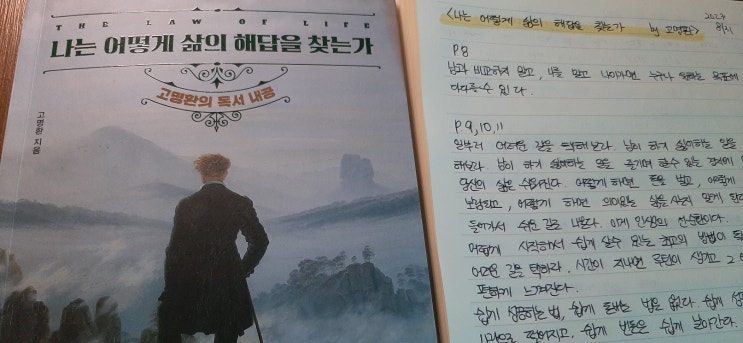 THE LAW OF LIFE
나는 어떻게 삶의 해답을 찾는가
고명환의 독서 내공
고명환 지음
<나는 어떻게 삶의 해답을 찾는가 by 고명환>
P.8
남과 비교하지 말고, 나를 믿고 나아가면 누구나 원하는 목표에
다다를 수 있다.
P.9,10,11
일부러 어려운 길을 택해보라. 남이 하기 싫어하는 일을
해보라. 남이 하기 싫어하는 일을 즐기며 할 수 있는 경지에
당신의 삶은 쉬워진다. 어떻게 하면 돈을 벌고, 어떻게
보람되고, 어떻게 하면 의미있는 삶을 사는지 알게 된다
들어가서 쉬운 길로 나온다. 이게 인생의 선순환이다.
어렵게 시작해서 쉽게 살 수 있는 최고의 방법이
어려운 길을 택하라. 시간이 지나면 루틴이 생기고 그
편하게 느껴진다.
쉽게 성공하는 법, 쉽게 돈버는 법은 없다. 쉽게
떨어지고, 쉽게 번 돈은 쉽게 날아간다.